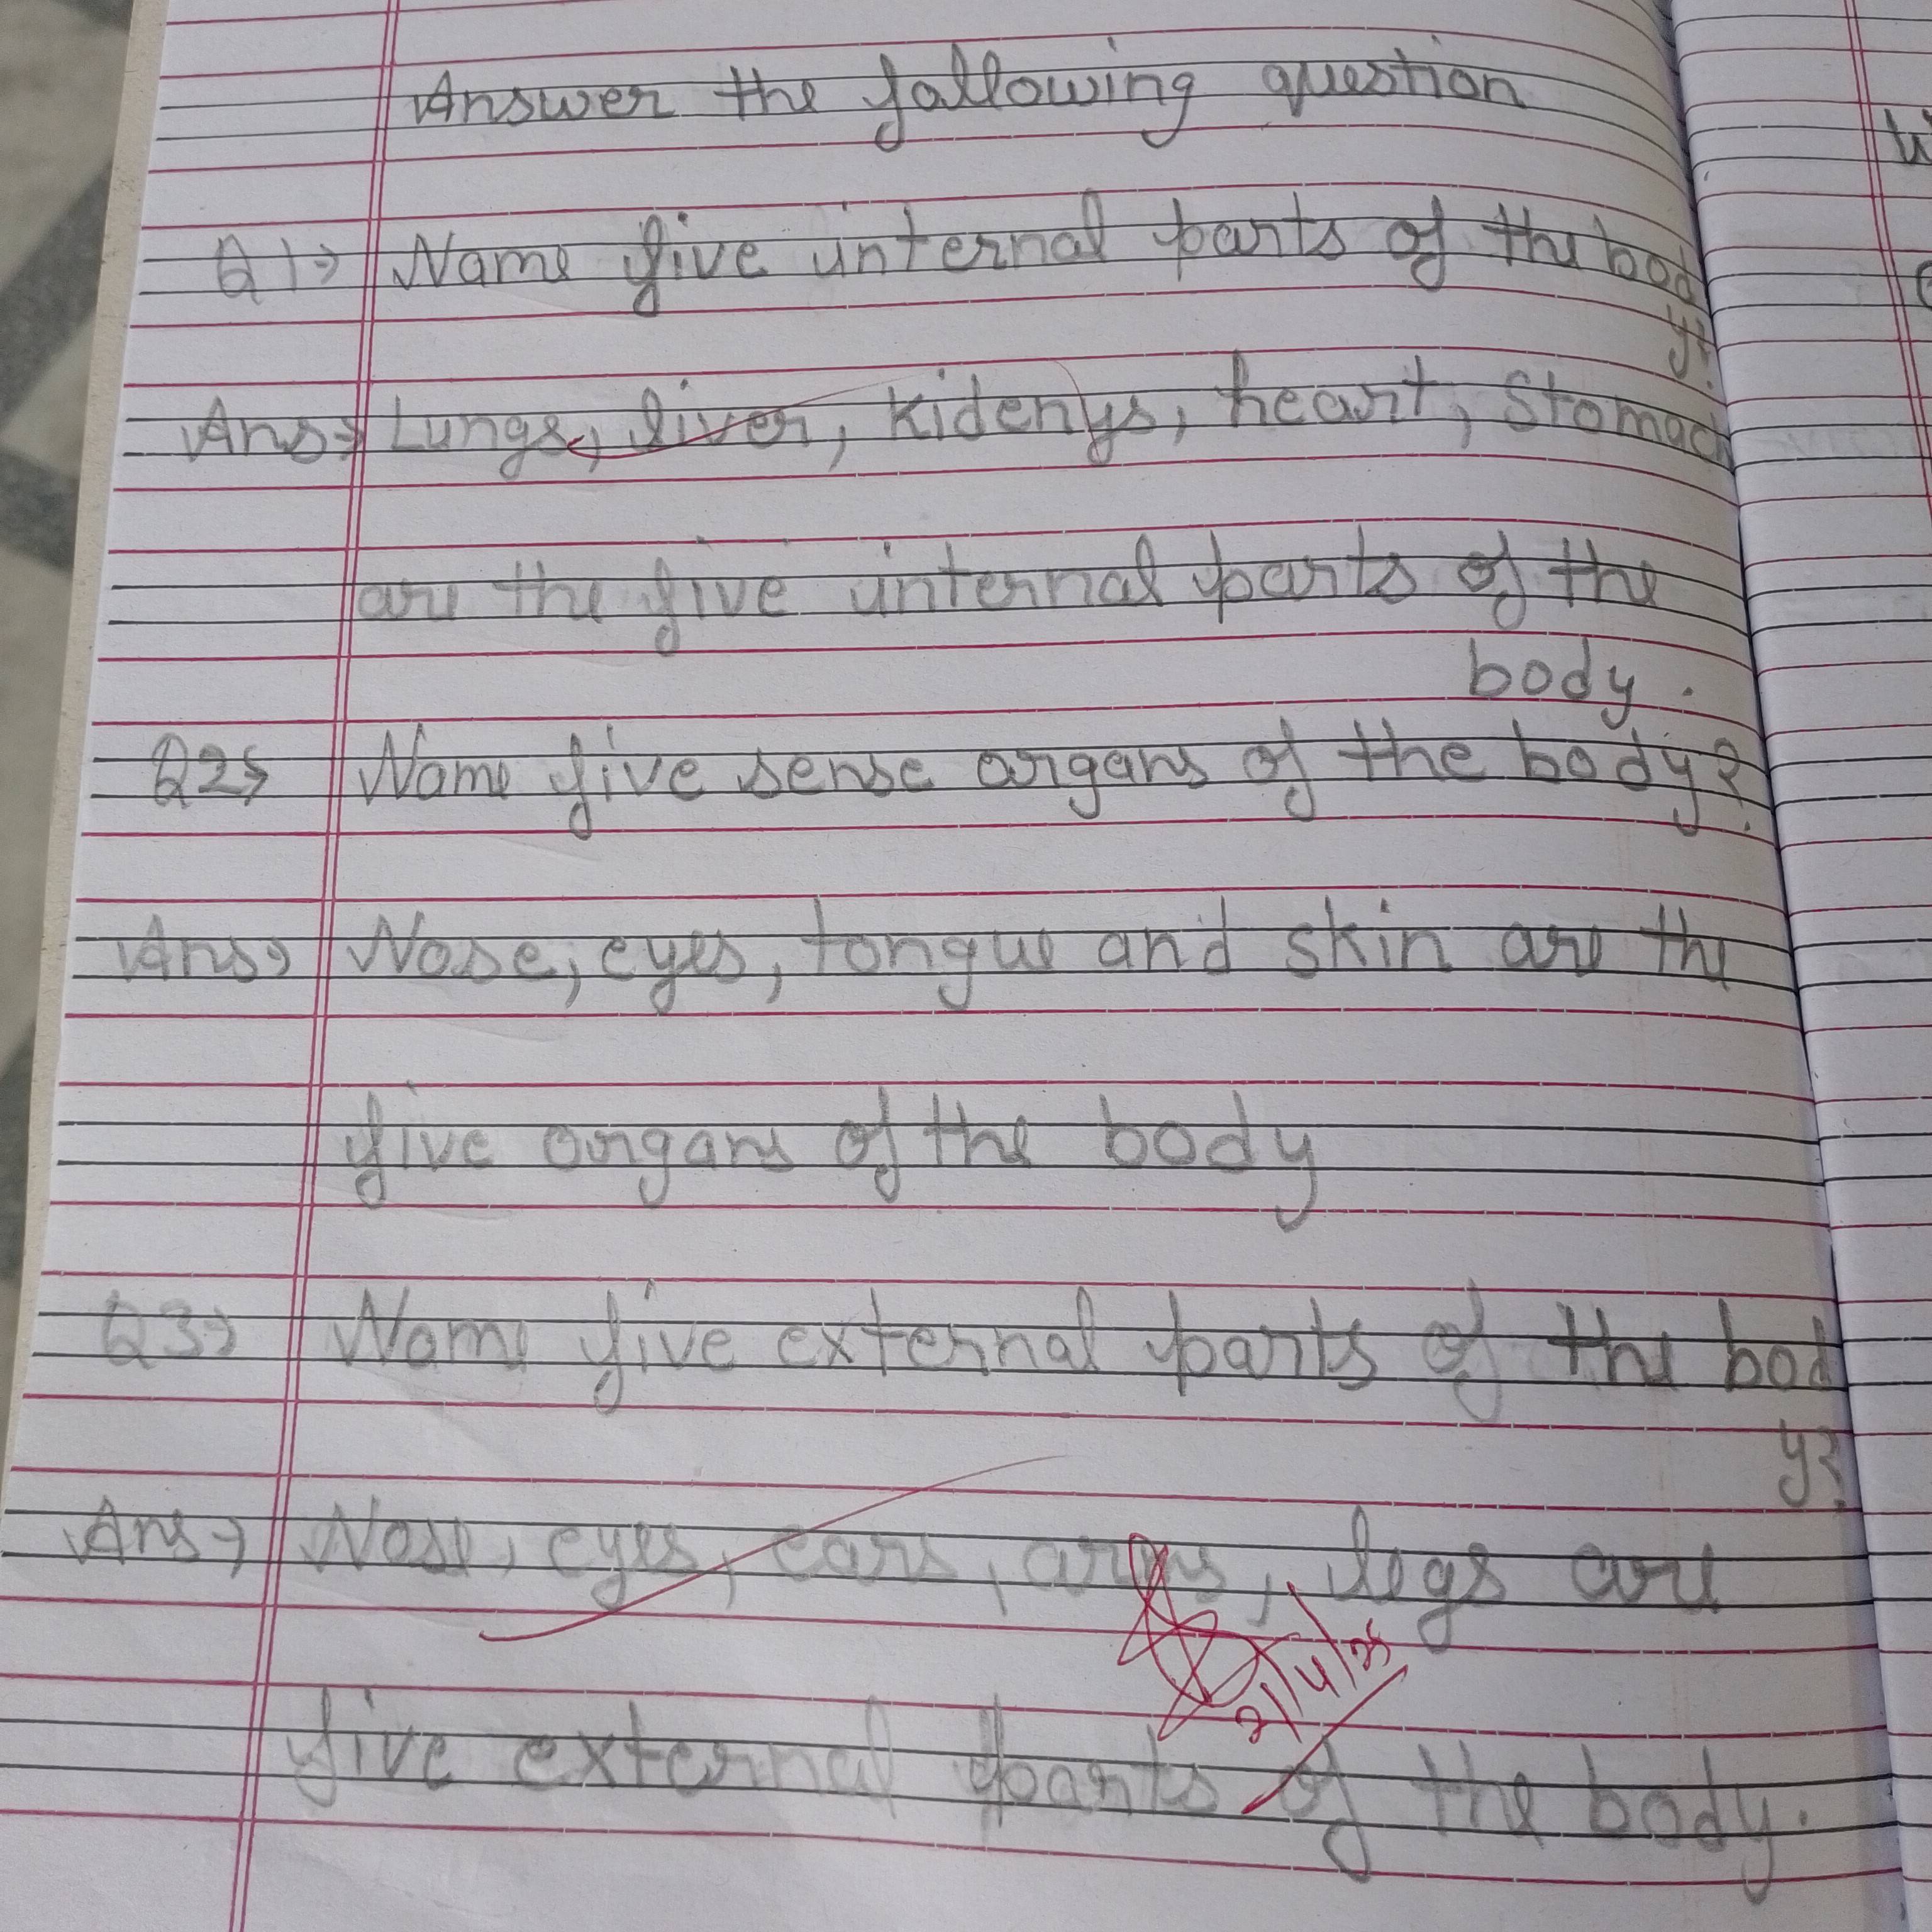 Answer the following question
Q1→ Name five internal parts of the bod
y?
Ans→ Lungs, liver, kidenys, heart, Stomach
are the five internal parts of the
body.
Q2→ Name five sense organs of the body?
Ans→ Nose, eyes, tongue and skin are the
five organs of the body
Q3→ Name five external parts of the bod
y?
Ans→ Nose, eyes, ears, arms, legs are
21/4/25
five external parts of the body.